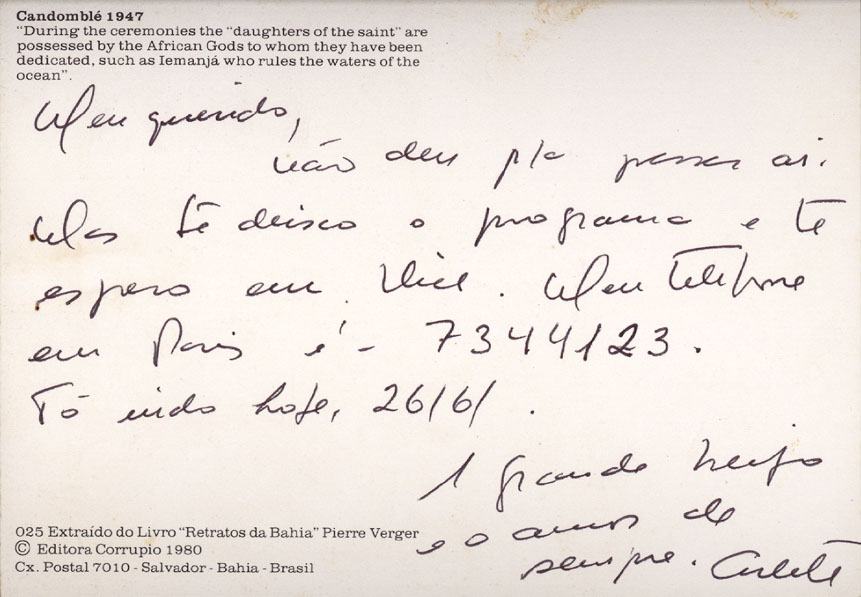 Candomblé 1947
“During the ceremonies the “daughters of the saint” are
possessed by the African Gods to whom they have been
dedicated, such as Iemanjá who rules the waters of the
ocean”.
Meu querido,
não deu p/a passar aí.
Mas te deixo o programa e te
espero em Nice. Meu telefone
em Paris é - 7344123.
Tô indo hoje, 26/6/.
1 grande beijo
e o amor de
sempre.
025 Extraído do Livro “Retratos da Bahia” Pierre Verger
© Editora Corrupio 1980
Cx. Postal 7010 - Salvador - Bahia - Brasil